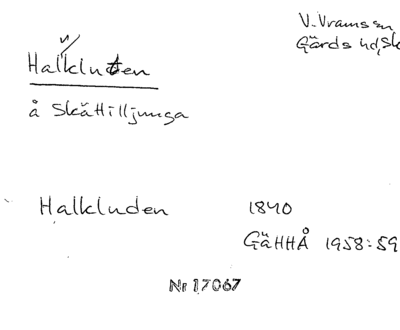 V. Vramssn
Gärds hd, Sk
Halkluten
å Skättilljunga
Halkluden 1840
GäHHÅ 1958:59
Nr 17067